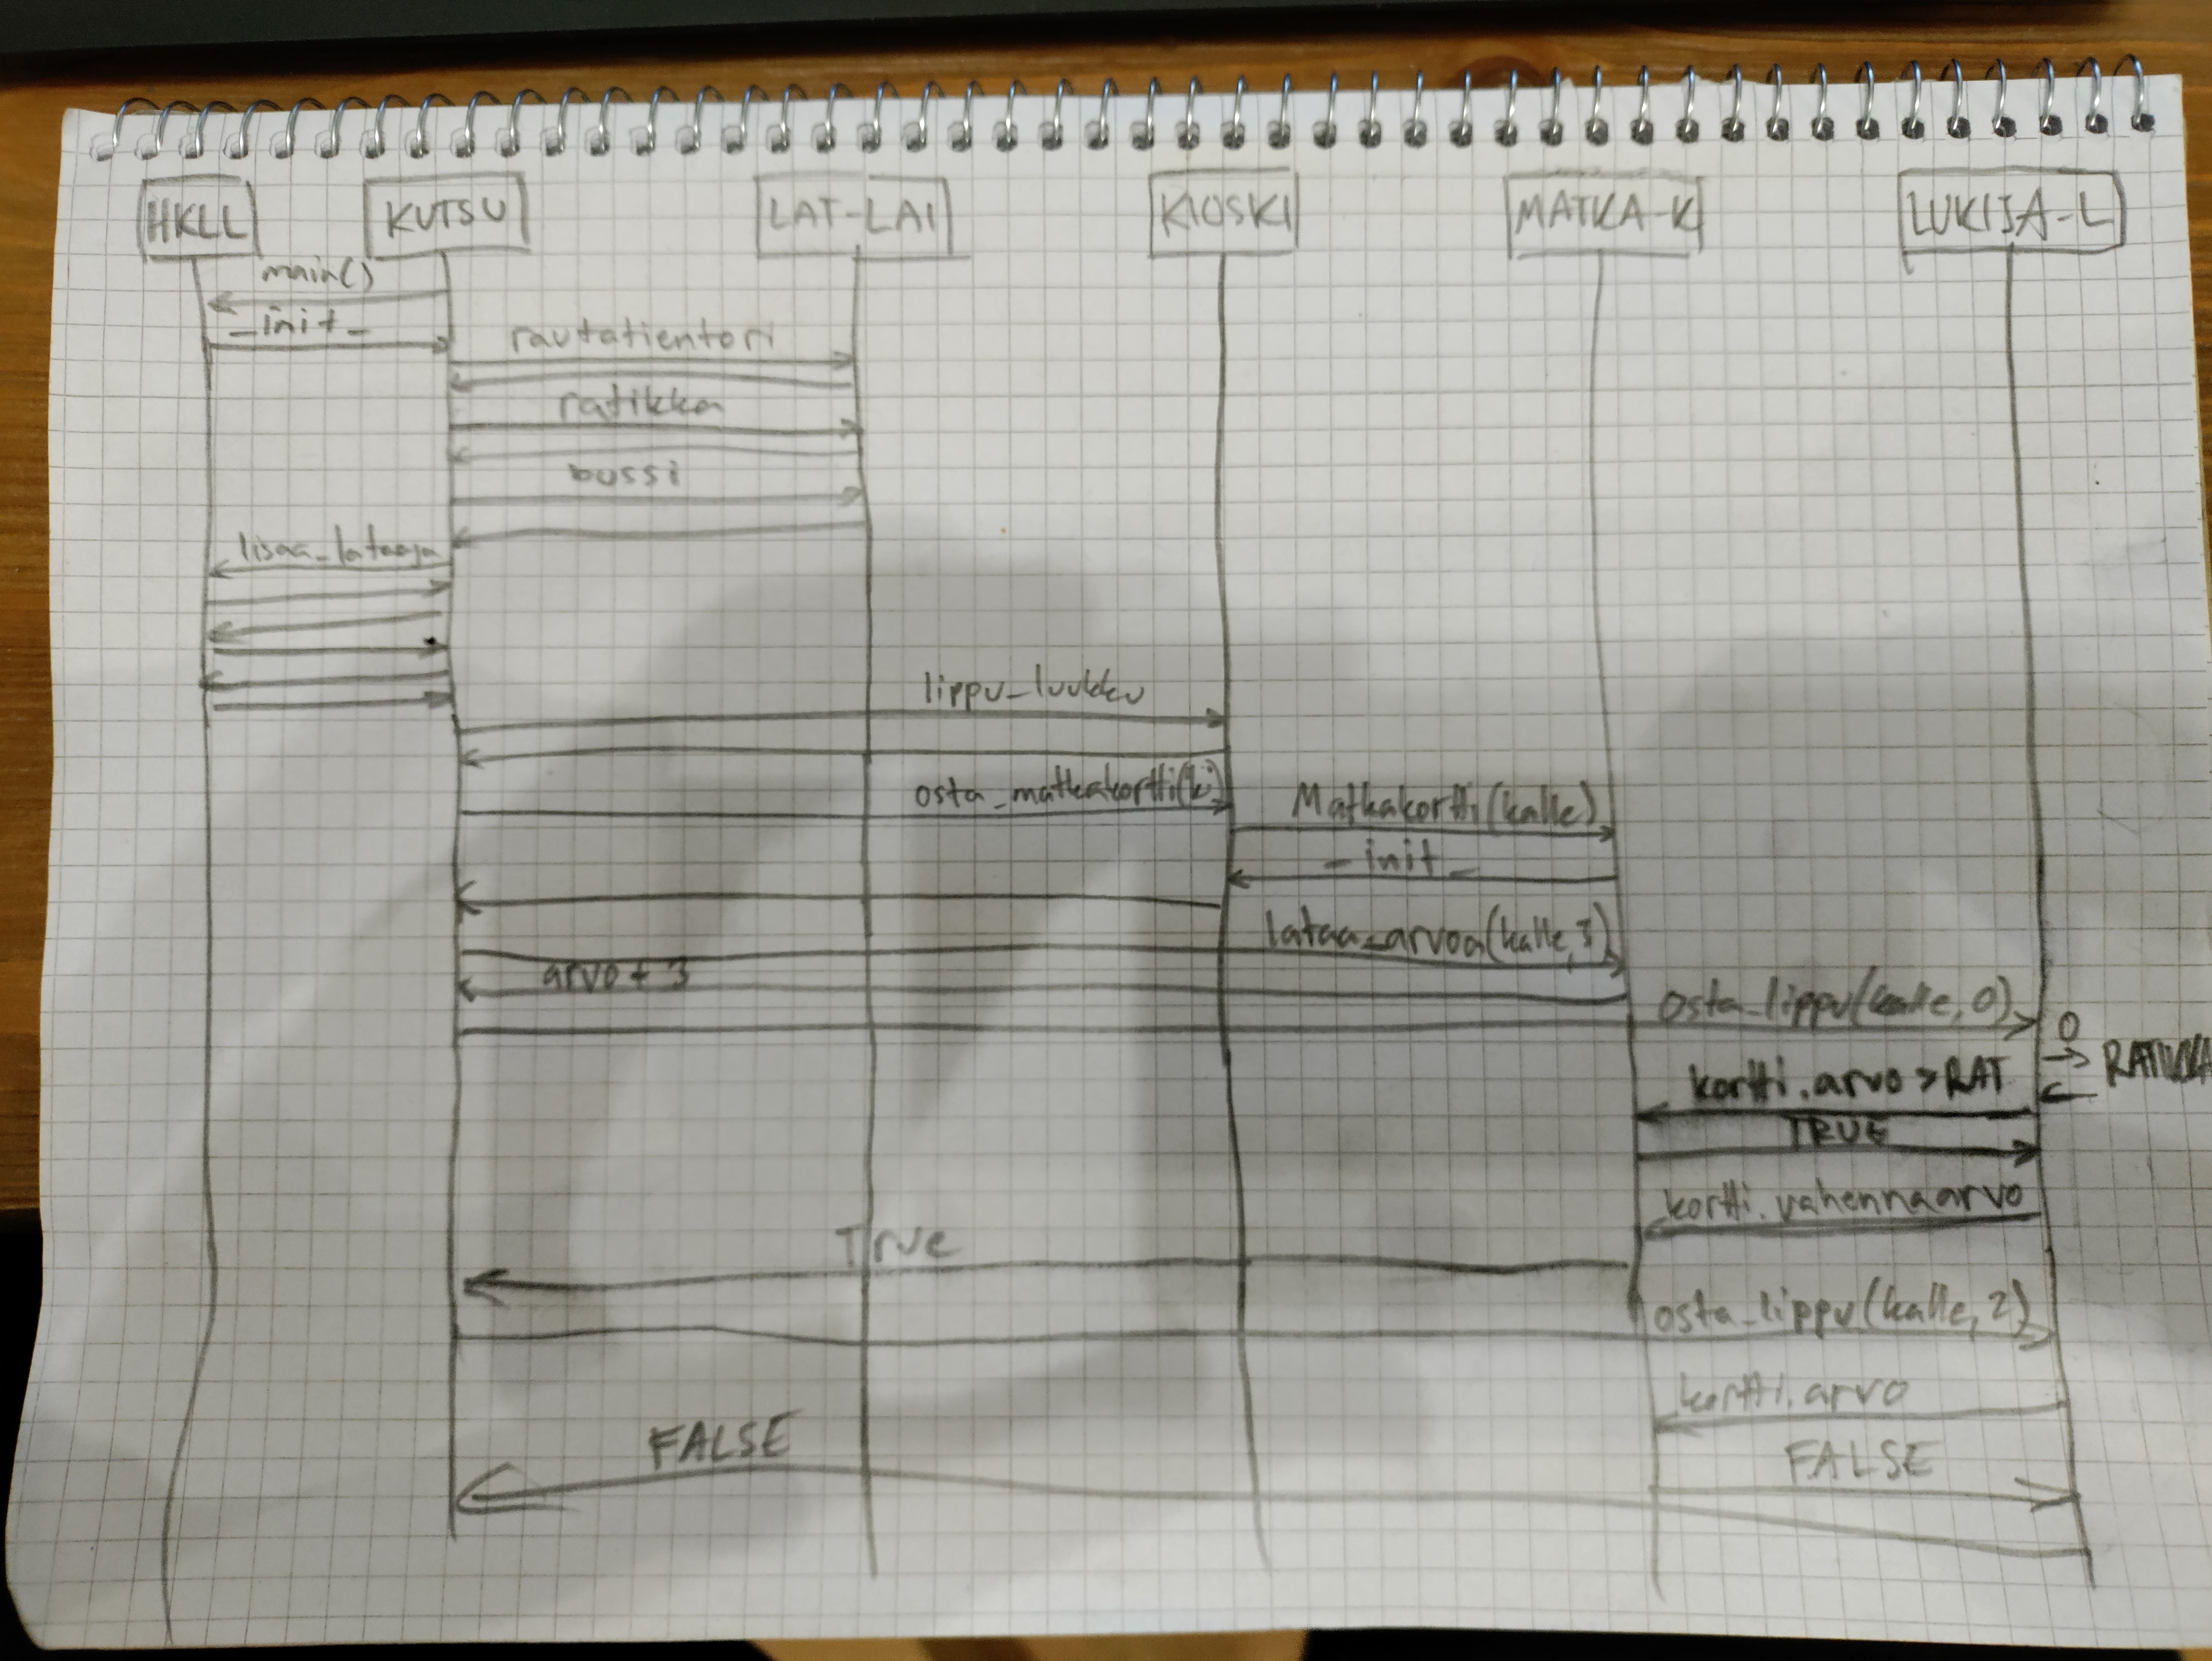 HKLL KUTSU LAT-LAI KIOSKI MATKA-K LUKIJA-L
main()
_init_
rautatientori
ratikka
bussi
lisaa_lataaja
lippu_luukku
osta_matkakortti(k)
Matkakortti(kalle)
_init_
lataa_arvoa(kalle,3)
arvo + 3
osta_lippu(kalle,0)
0
RATIKKA
kortti.arvo > RAT
TRUE
kortti.vahennaarvo
True
osta_lippu(kalle,2)
kortti.arvo
FALSE
FALSE